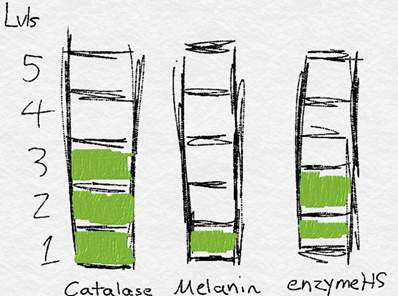 Lvls
5
4
3
2
1
Catalase Melanin enzymeHS